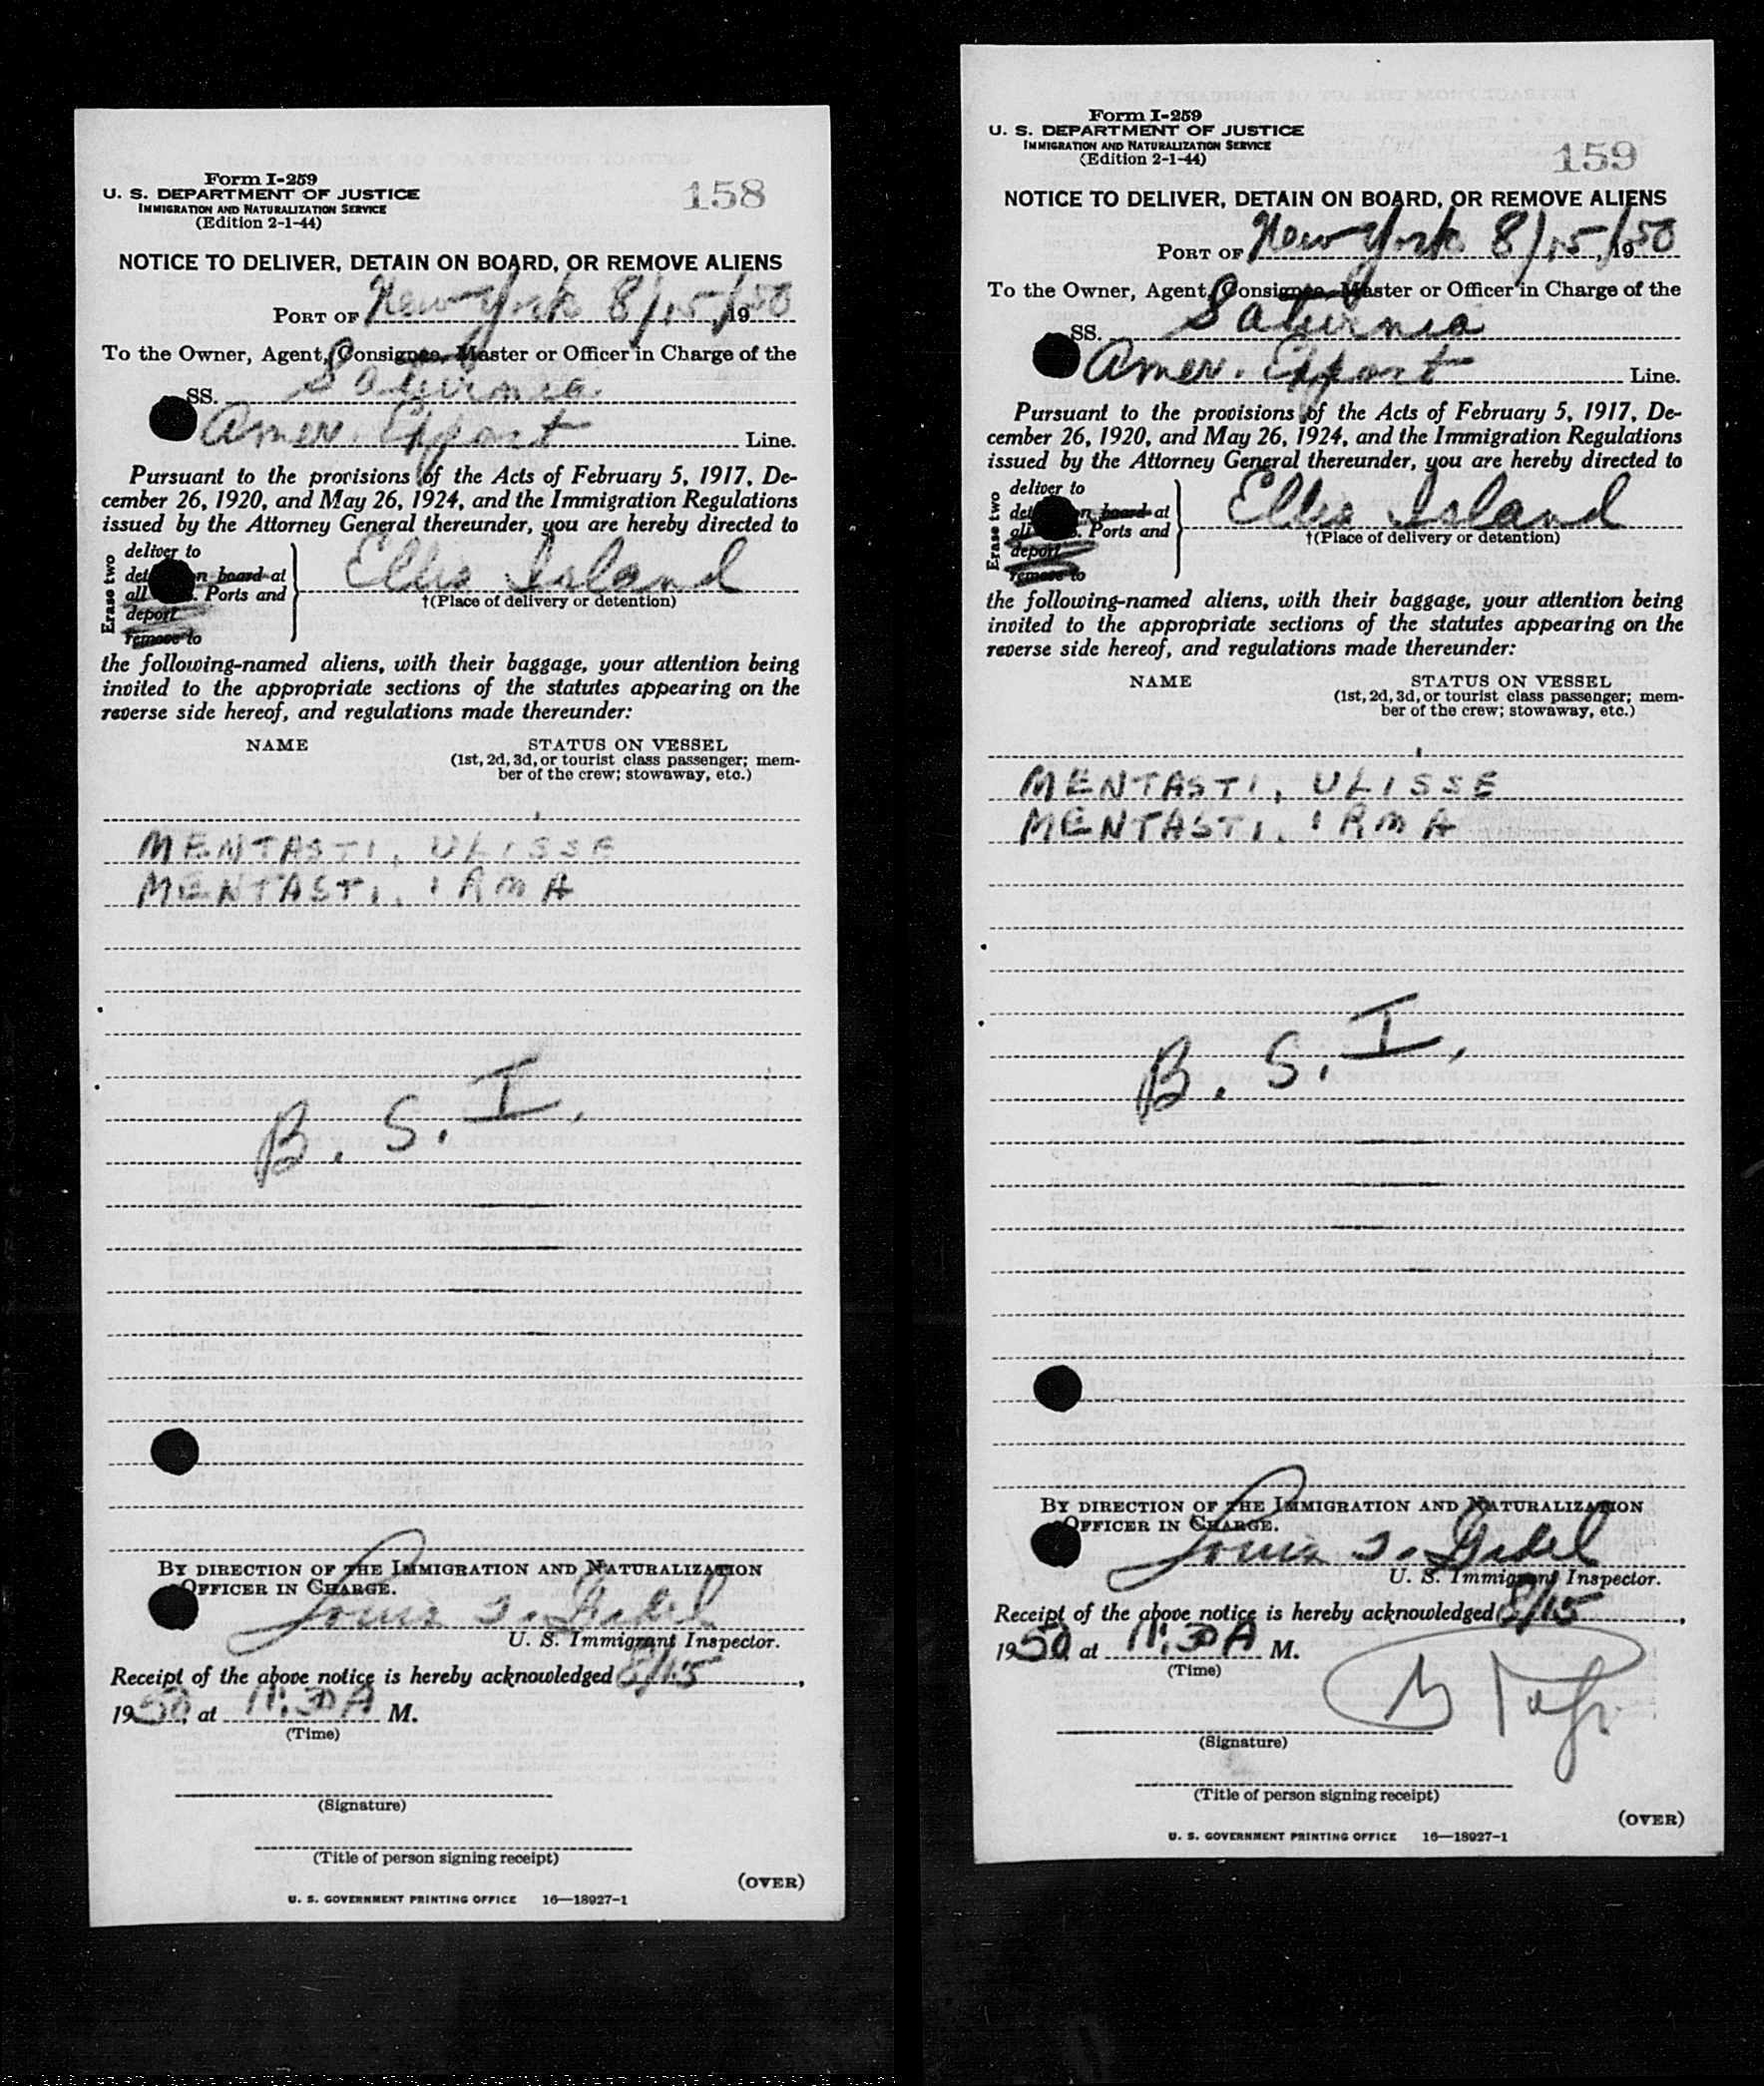 Form I-259
U. S. DEPARTMENT OF JUSTICE
IMMIGRATION AND NATURALIZATION SERVICE
(Edition 2-1-44)
158
NOTICE TO DELIVER, DETAIN ON BOARD, OR REMOVE ALIENS
PORT OF New York 8/15/1950
To the Owner, Agent, Consignee, Master or Officer in Charge of the
SS. Saturnia
Amer. Export Line.
Pursuant to the provisions of the Acts of February 5, 1917, De-
cember 26, 1920, and May 26, 1924, and the Immigration Regulations
issued by the Attorney General thereunder, you are hereby directed to
Erase two
deliver to
n board at
all . Ports and
deport
remove to
Ellis Island
†(Place of delivery or detention)
the following-named aliens, with their baggage, your attention being
invited to the appropriate sections of the statutes appearing on the
reverse side hereof, and regulations made thereunder:
NAME STATUS ON VESSEL
(1st, 2d, 3d, or tourist class passenger; mem-
ber of the crew; stowaway, etc.)
MENTASTI, ULISSE
MENTASTI, IRMA
B. S. I.
BY DIRECTION OF THE IMMIGRATION AND NATURALIZATION
OFFICER IN CHARGE.
Louis
U. S. Immigrant Inspector.
Receipt of the above notice is hereby acknowledged 8/15,
1950, at 11:30 A M.
(Time)
(Signature)
(Title of person signing receipt)
(OVER)
U. S. GOVERNMENT PRINTING OFFICE 16—18927-1
Form I-259
U. S. DEPARTMENT OF JUSTICE
IMMIGRATION AND NATURALIZATION SERVICE
(Edition 2-1-44)
159
NOTICE TO DELIVER, DETAIN ON BOARD, OR REMOVE ALIENS
PORT OF New York 8/15/1950
To the Owner, Agent, Consignee, Master or Officer in Charge of the
SS. Saturnia
Amer. Export Line.
Pursuant to the provisions of the Acts of February 5, 1917, De-
cember 26, 1920, and May 26, 1924, and the Immigration Regulations
issued by the Attorney General thereunder, you are hereby directed to
Erase two
deliver to
n board at
Ports and
deport
remove to
Ellis Island
†(Place of delivery or detention)
the following-named aliens, with their baggage, your attention being
invited to the appropriate sections of the statutes appearing on the
reverse side hereof, and regulations made thereunder:
NAME STATUS ON VESSEL
(1st, 2d, 3d, or tourist class passenger; mem-
ber of the crew; stowaway, etc.)
MENTASTI, ULISSE
MENTASTI, IRMA
B. S. I.
BY DIRECTION OF THE IMMIGRATION AND NATURALIZATION
OFFICER IN CHARGE.
Louis
U. S. Immigrant Inspector.
Receipt of the above notice is hereby acknowledged 8/15,
1950, at 11:30 A M.
(Time)
(Signature)
(Title of person signing receipt)
(OVER)
U. S. GOVERNMENT PRINTING OFFICE 16—18927-1